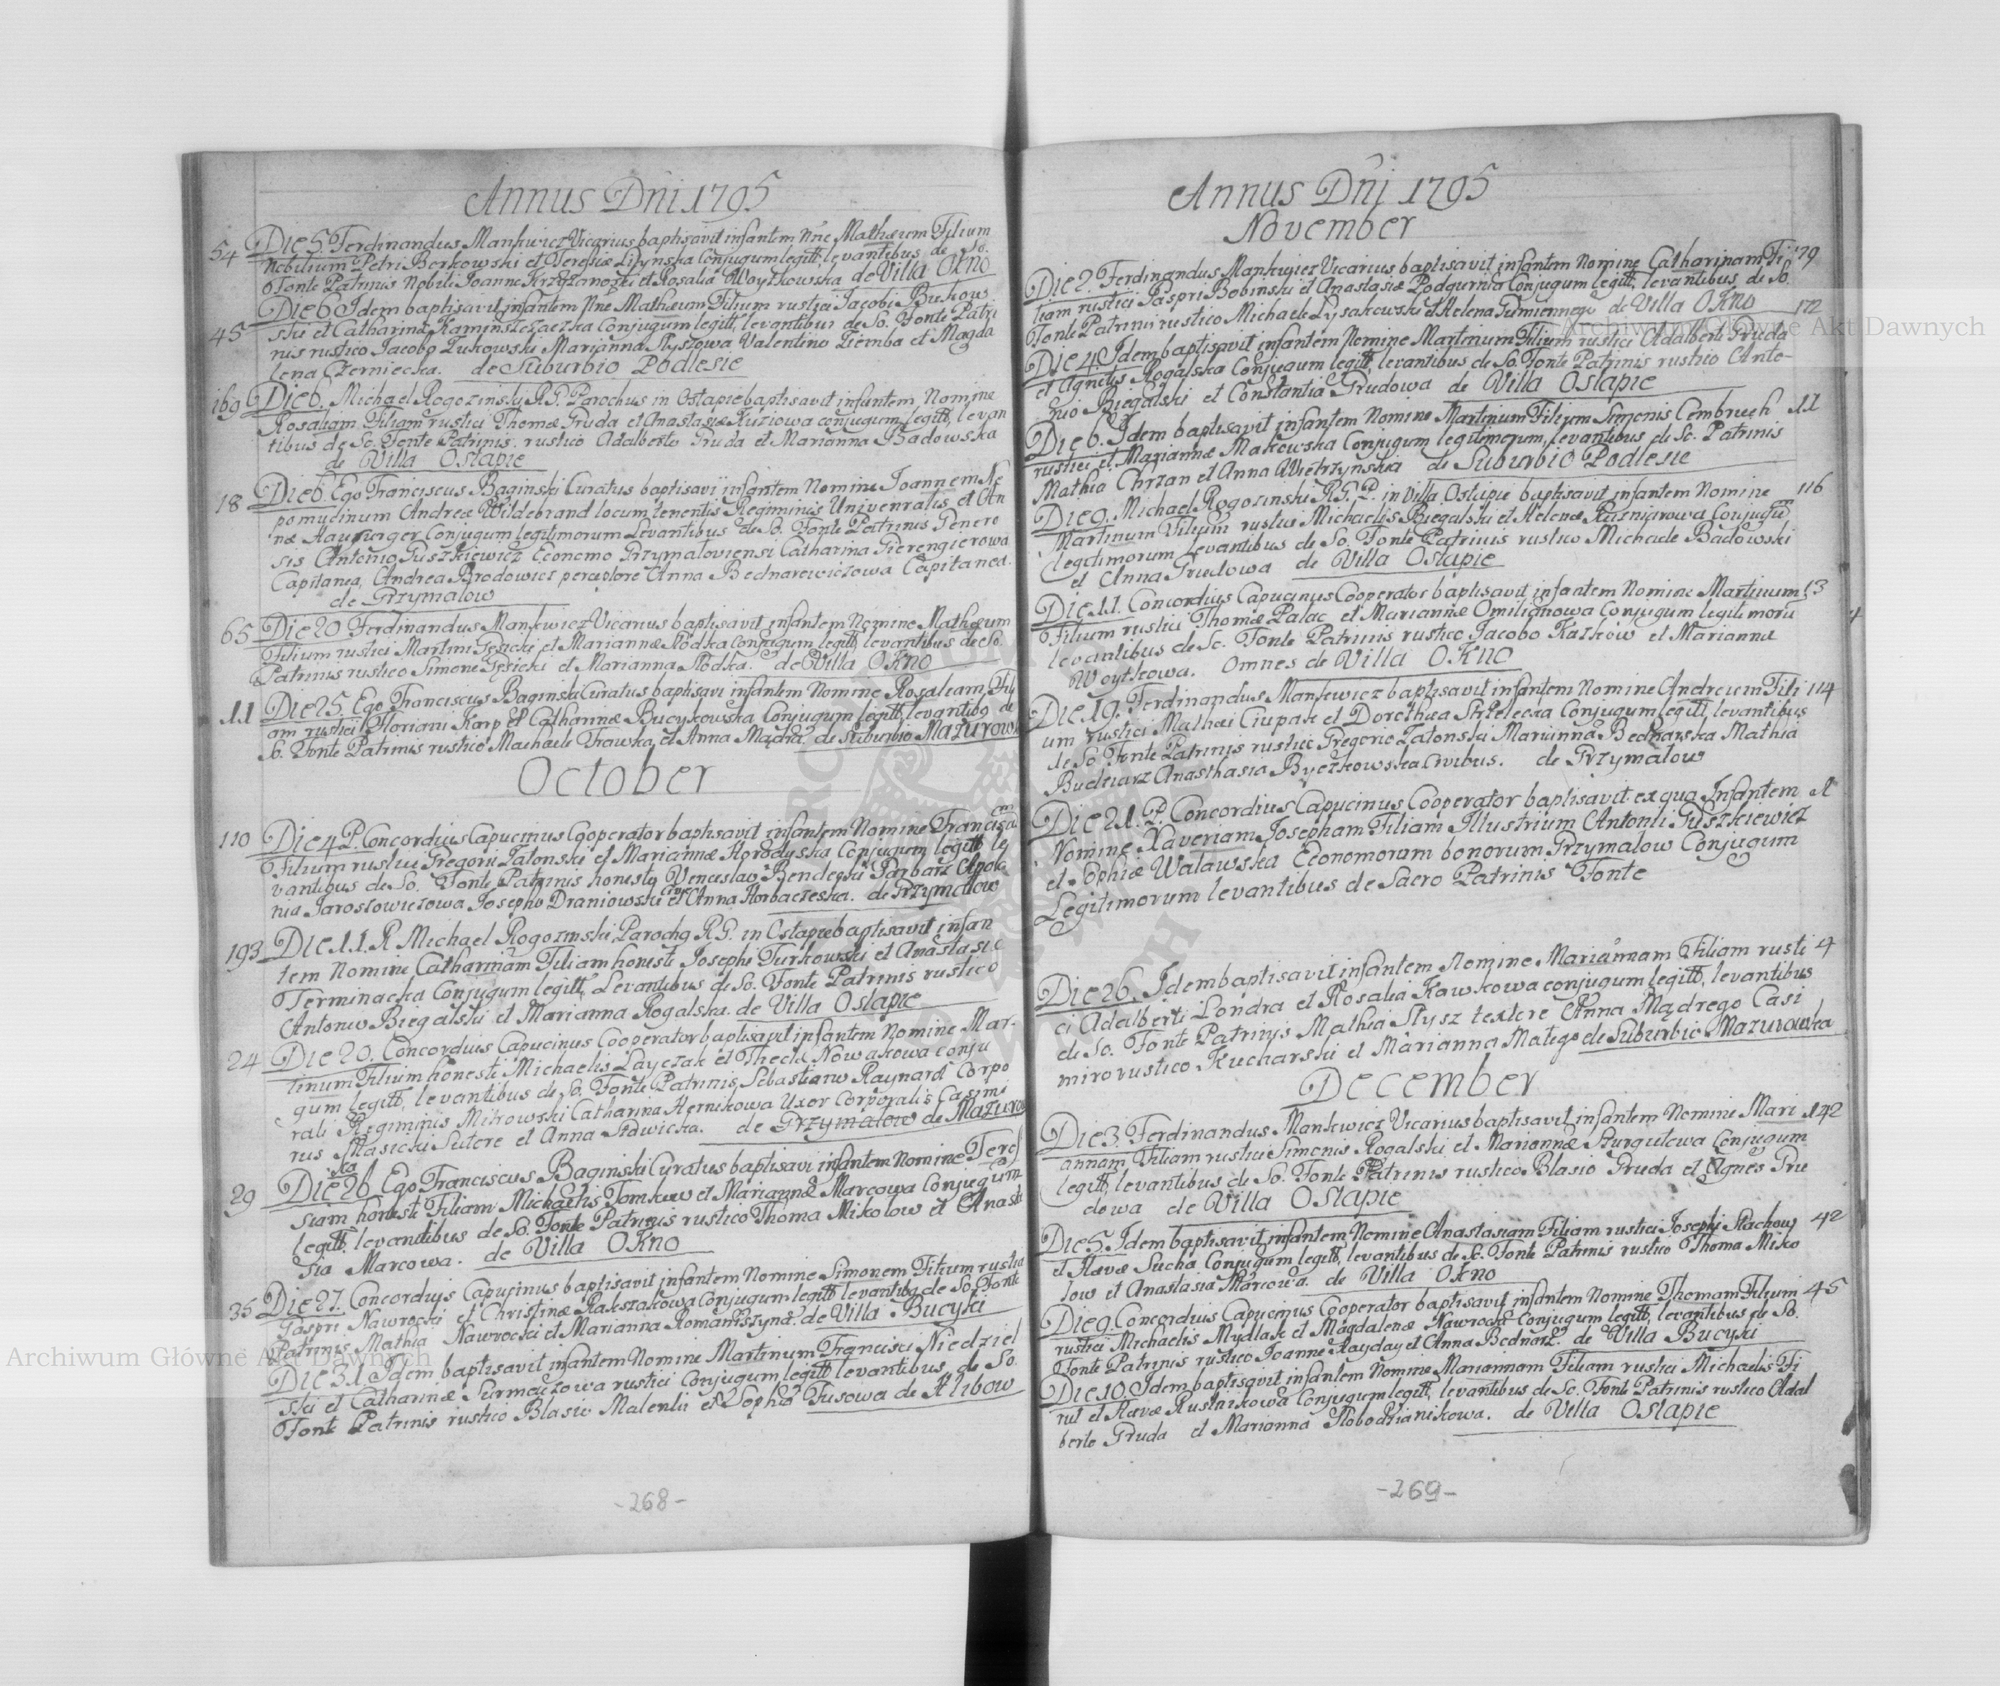 Annus Dni 1795
54 Die 5 Ferdinandus Mankwicz Vicarius baptisavit infantem Nne Mathæum Filium
Nobilium Petri Berkowski et Teresiæ Lipynska Conjugum legitt, levantibus de So.
Fonte Patrinis Nobili Joanne Krzyzanoski et Rosalia Woytkowska de Villa OKNO
45 Die 6 Idem baptisavit infantem Nne Mathæum Filium rustici Jacobi Bukow
ski et Catharina Conjugum legitt, levantibus de So. Fonte Patri
nis rustico Jacobo Zukowski Marianna Slyszowa Valentino Ziemba et Magda
lena Czerniecka. de Suburbio Podlesie
169 Die 6. Michael Rogozinsky R.G. Parochus in Ostapie baptisavit infantem Nomine
Rosaliam Filiam rustici Thomæ Gruda et Anastasiæ Kuziowa conjugum legitt, levan
tibus de So. Fonte Patrinis rustico Adalberto Gruda et Marianna Badowska
de Villa Ostapie
18 Die 6 Ego Franciscus Baginski Curatus baptisavi infantem Nomine Joannem Ne
pomucinum Andreæ Wildebrand locum tenentis Regiminis et An
næ Conjugum legitimorum Levantibus de So. Fonte Patrinis Genero
sis Antonio Puszkiewicz Economo Grzymaloviensi Catharina
Capitanea, Andrea Brodowicz perceptore Anna Bednarewiczowa Capitanea.
de Grzymalow
65 Die 20 Ferdinandus Mankwicz Vicarius baptisavit infantem Nomine Mathæum
Filium rustici Martini Gesicki et Mariannæ Slodka Conjugum legitt levantibus de So.
Patrinis rustico Simone Gesicki et Marianna Slodka. de Villa OKNO
11 Die 25. Ego Franciscus Baginski Curatus baptisavi infantem Nomine Rosaliam Fili
am rustici Floriani Karp et Catharinæ Bucykowska Conjugum legitt, levantibg de
S. Fonte Patrinis rustico Michaele Trawska et Anna Macha de Suburbio Mazurowk
October
110 Die 4 P. Concordius Capucinus Cooperator baptisavit infantem Nomine Francisc am
Filium rustici Gregorii Zatonski et Mariannæ Horodyska Conjugum legitt le
vantibus de So. Fonte Patrinis honesto Venceslao Benderski Apolo
nia Jaroslowiczowa Josepho Draniowski et Anna Horbaczeska. de Grzymalow
193 Die 11. R Michael Rogozinski Parochg R.G. in Ostapie baptisavit infan
tem Nomine Catharinam Filiam honesti Josephi Turkowski et Anastasiæ
Terminacka Conjugum legitt, Levantibus de So. Fonte Patrinis rustico
Antonio Biegalski et Marianna Rogalska. de Villa Ostapie
24 Die 20. Concordius Capucinus Cooperator baptisavit infantem Nomine Mar-
tinum Filium honesti Michaelis Layczak et Theclæ Nowakowa conju
gum legitt, levantibus de So. Fonte Patrinis, Sebastiano Raynard Corpo
rali Regiminis Mitrowski Catharina Hernikowa Uxor Corporalis Casimi
rus Masicki Sutore et Anna Sldwicka. de Grzymalow de Mazurow
ka
29 Die 26 Ego Franciscus Baginski Curatus baptisavi infantem Nomine Tere
siam honesti Filiam Michaelis Tomkow et Mariannæ Marcowa Conjugum
legitt, levantibus de So. Fonte Patrinis rustico Thoma Mikolow et Anasta
sia Marcowa. de Villa OKNO
35 Die 27. Concordius Capucinus baptisavit infantem Nomine Simonem Filium rustici
Gaspri Nawrocki et Christinæ Rakszakowa Conjugum legitt levantibg de So. Fonte
Patrinis Mathia Nawrocki et Marianna Romaniszyna. de Villa Bucyki
Die 31. Idem baptisavit infantem Nomine Martinum Francisci Niedziel
ski et Catharinæ Surmaczowa rustici Conjugum legitt levantibus, de So.
Fonte Patrinis rustico Blasio Malenki et Sophia Tusowa de Klibow
-268-
Annus Dni 1795
November
Die 2. Ferdinandus Mankwicz Vicarius baptisavit infantem Nomine Catharinam Fi 179
liam rustici Gaspri Bobinski et Anastasiæ Podgurnia Conjugum legitt, levantibus de So.
Fonte Patrinis rustico Michaele Lysakowski et Helena Tumiennego de Villa OKNO
Die 4 Idem baptisavit infantem Nomine Martinum Filium rustici Adalberti Gruda 172
et Agnetis Rogalska Conjugum legitt, levantibus de So. Fonte Patrinis rustico Anto-
nio Biegalski et Constantia Grudowa de Villa Ostapie
Die 6. Idem baptisavit infantem Nomine Martinum Filium Simonis Cembruch 11
rustici et Mariannæ Makowska Conjugum legitimorum, levantibus de So. Patrinis
Mathia Chrzan et Anna Wietrzynska de Suburbio Podlesie
Die 9. Michael Rogosinski R.G.P. in Villa Ostapie baptisavit infantem Nomine 116
Martinum Filium rustici Michaelis Biegalski et Helenæ Kusniarowa Conjugum
Legitimorum Levantibus de So. Fonte Patrinis rustico Michaele Badowski
et Anna Grudowa de Villa Ostapie
Die 11. Concordius Capucinus Cooperator baptisavit infantem Nomine Martinum 13
Filium rustici Thomæ Palac et Mariannæ Omilianowa Conjugum legitimoru
levantibus de So. Fonte Patrinis rustico Jacobo Kazkow et Marianna
Woytkowa. Omnes de Villa OKNO
Die 19. Ferdinandus Mankwicz baptisavit infantem Nomine Andreum Fili 114
um rustici Mathæi Ciupak et Dorothea Strzelecka Conjugum legitt, levantibus
de So Fonte Patrinis rustico Gregorio Zatonski Marianna Bednarska Mathia
Budniarz Anasthasia Byczkowska Civibus. de Grzymalow
Die 21. P. Concordius Capucinus Cooperator baptisavit ex qua Infantem 1
Nomine Xaveriam Josepham Filiam Illustrium Antonii Puszkiewicz
et Sophiæ Walawska Economorum bonorum Grzymalow Conjugum
Legitimorum levantibus de Sacro Patrinis Fonte
Die 26. Idem baptisavit infantem Nomine Mariannam Filiam rusti 4
ci Adalberti Londra et Rosalia Kawkowa conjugum legitt, levantibus
de So. Fonte Patrinis Mathia Slysz textere Anna Mądrego Casi
miro rustico Kucharski et Marianna Matego de Suburbio Mazurowka
December
Die 3. Ferdinandus Mankwicz Vicarius baptisavit infantem Nomine Mari 142
annam Filiam rustici Simonis Rogalski et Mariannæ Szurgutowa Conjugum
legitt, levantibus de So. Fonte Patrinis rustico Blasio Gruda et Agnes Gru
dowa de Villa Ostapie
Die 5. Idem baptisavit infantem Nomine Anastasiam Filiam rustici Josephi Stachow 42
et Slavæ Sucha Conjugum legitt, levantibus de So. Fonte Patrinis rustico Thoma Miko
low et Anastasia Marcowa. de Villa OKNO
Die 9. Concordius Capucinus Cooperator baptisavit infantem Nomine Thomam Filium 45
rustici Michaelis Mydlak et Magdalenæ Nawrocka Conjugum legitt, levantibus de So.
Fonte Patrinis rustico Joanne Kayday et Anna Bednarz. de Villa Bucyki
Die 10. Idem baptisavit infantem Nomine Mariannam Filiam rustici Michaelis Fi
rut et Slavæ Rusnikowa Conjugum legitt, levantibus de So. Fonte Patrinis rustico Adal
berto Gruda et Marianna Slobodzianikowa. de Villa Ostapie
-269-
Archiwum Główne Akt Dawnych
Archiwum Główne Akt Dawnych